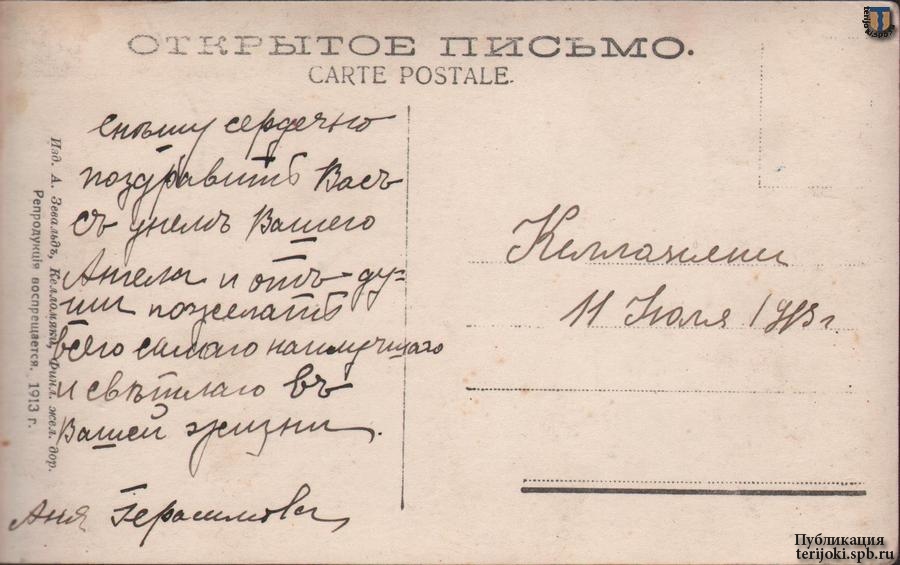 ОТКРЫТОЕ ПИСЬМО.
CARTE POSTALE.
Спѣшу сердечно
поздравить Васъ
съ днемъ Вашего
Ангела и отъ ду-
ши пожелать
всего самаго наилучшаго
и свѣтлаго въ
Вашей жизни.
Аня Герасимова
Изд. А. Зевальдъ, Келломяки, Финл. жел. дор.
Репродукція воспрещается. 1913 г.
Келломяки
11 Июля 1913 г
terijoki.spb.ru
Публикация
terijoki.spb.ru